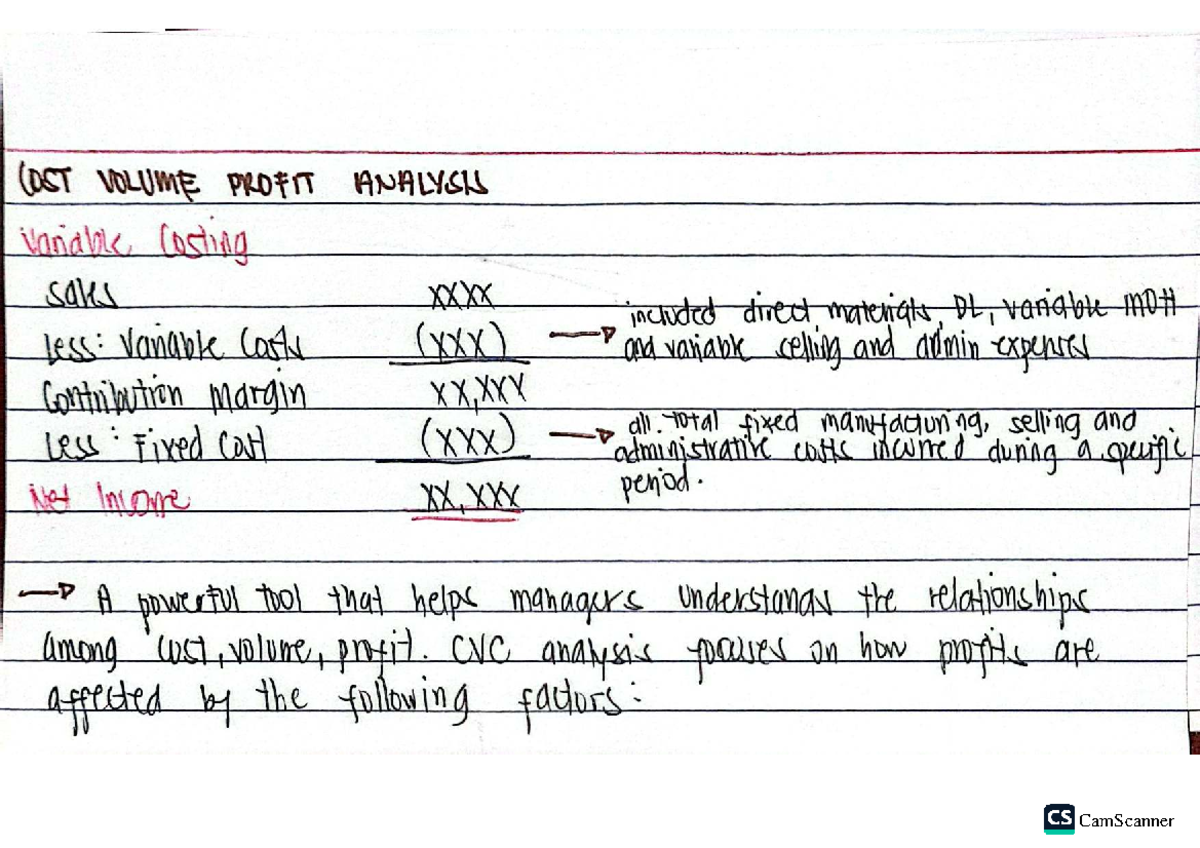 COST VOLUME PROFIT ANALYSIS
Variable Costing
Sales XXXX
Less: Variable Costs (XXX) → included direct materials, DL, variable MOH
and variable selling and admin expenses
Contribution margin XX,XXX
Less: Fixed Cost (XXX) → all. Total fixed manufacturing, selling and
administrative costs incurred during a specific
period.
Net Income XX,XXX
→ A powerful tool that helps managers understands the relationships
among cost, volume, profit. CVC analysis focuses on how profits are
affected by the following factors:
CS CamScanner